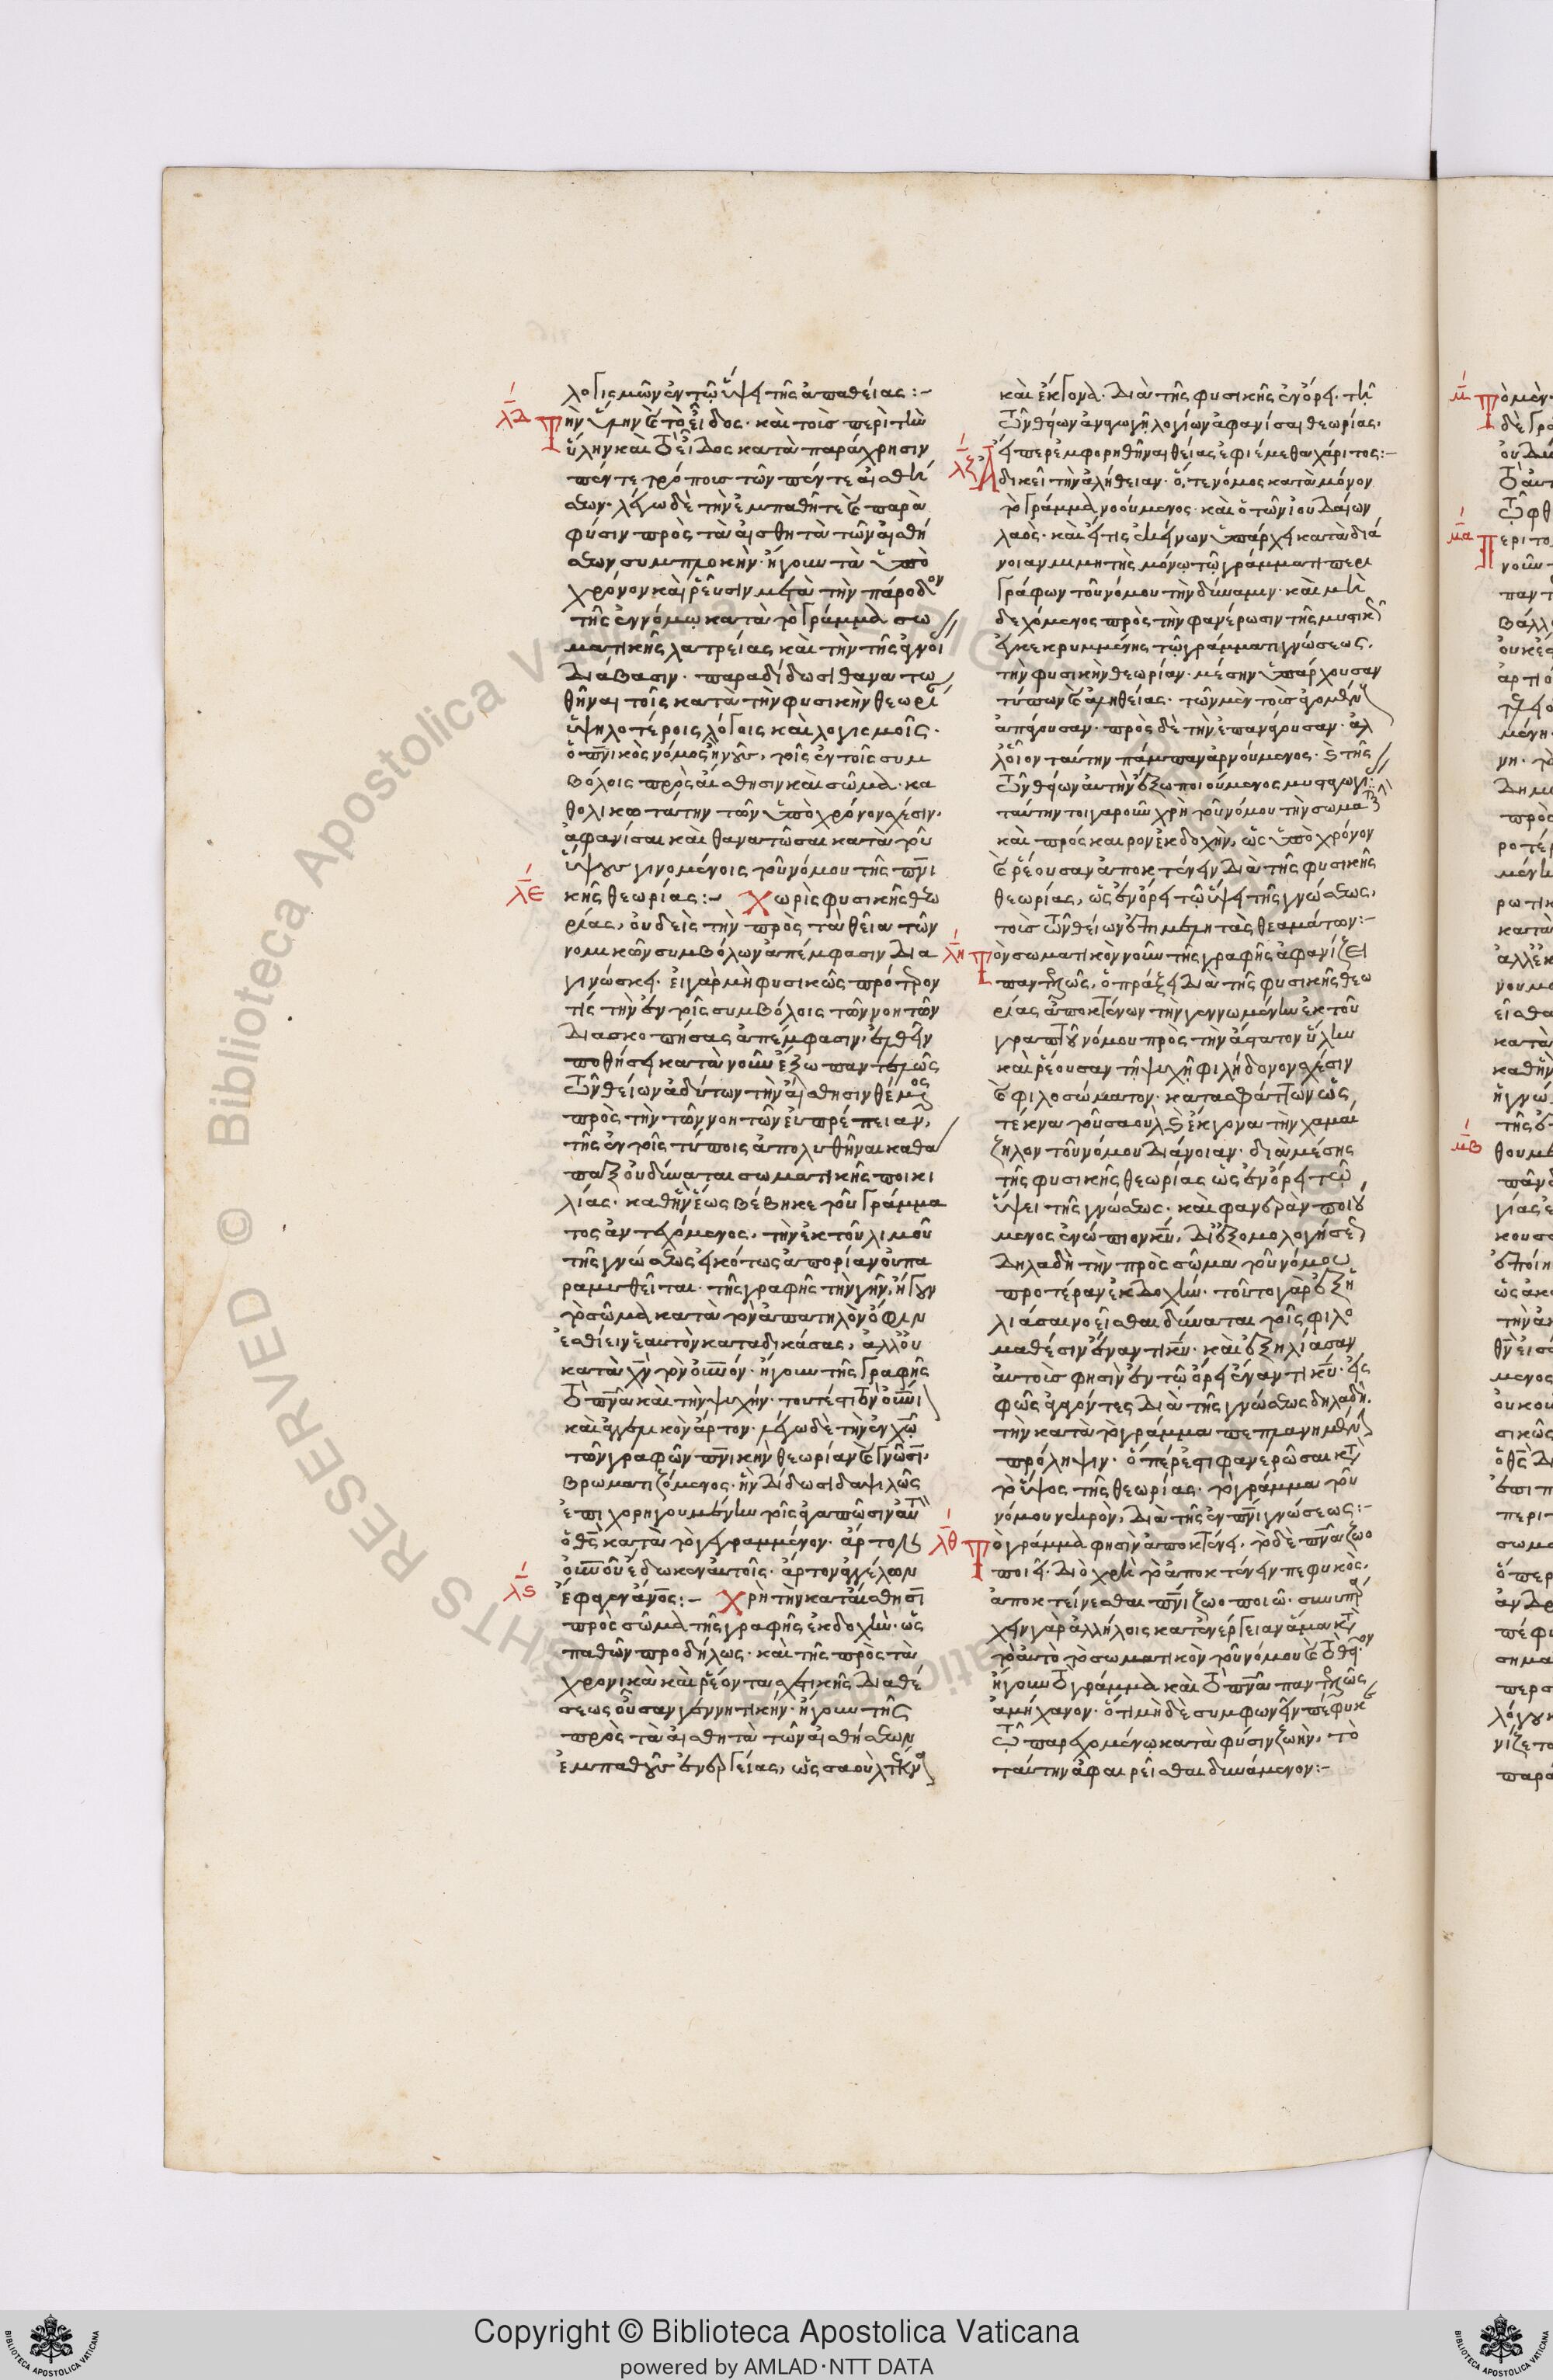 λογισμῶν ἐν τῷ ὕψει τῆς ἀπαθείας:-
λδ Τὴν ὕλην καὶ τὸ εἶδος· καὶ τοῖς περὶ τὴν
ὕλην καὶ τὸ εἶδος κατὰ παράχρησιν
πέντε τρόποις τῶν πέντε αἰσθή
σεων· λέγω δὲ τὴν ἐμπαθῆ τε καὶ παρὰ
φύσιν πρὸς τὰ αἰσθητὰ τῶν αἰσθή
σεων συμπλοκήν· ἤγουν τὰ ὑπὸ
χρόνον καὶ ῥεῦσιν μετὰ τὴν πάροδον
τῆς ἐννόμω κατὰ τὸ γράμμα σω
ματικῆς λατρείας καὶ τὴν τῆς ἀγνοί
διάβασιν· παραδίδωσι θανατω
θῆναι τοῖς κατὰ τὴν φυσικὴν θεωρί
ὑψηλοτέροις λόγοις καὶ λογισμοῖς·
ὁ πνικὸς νόμος ἢ νοῦς, τοῖς ἐν τοῖς συμ
βόλοις πρὸς αἴσθησιν καὶ σῶμα· κα
θολικωτάτην τῶν ὑπὸ χρόνον σχέσιν·
ἀφανίσαι καὶ θανατῶσαι κατὰ τοῦ
ὕψους γινομένοις τοῦ νόμου τῆς πνι
λε κῆς θεωρίας:- Χωρὶς φυσικῆς θεω
ρίας, οὐδεὶς τὴν πρὸς τὰ θεῖα τῶν
νομικῶν συμβόλων ἀπέμφασιν δια
γινώσκει· εἰ γὰρ μὴ φυσικῶς πρότερον
τίς τὴν ἐν τοῖς συμβόλοις τῶν νοητῶν
διασκοπήσας ἀπέμφασιν, ἐλθεῖν
ποθήσει κατὰ νοῦν ἔξω παντελῶς
τῶν θείων ἀδύτων τὴν αἴσθησιν θέμενος
πρὸς τὴν τῶν νοητῶν εὐπρέπειαν,
τῆς ἐν τοῖς τύποις ἀπολυθῆναι καθά
παξ οὐ δύναται σωματικῆς ποικι
λίας· καθ' ἣν ἕως βέβηκε τοῦ γράμμα
τος ἀντεχόμενος, τὴν ἐκ τοῦ λιμοῦ
τῆς γνώσεως εἰκότως ἀπορίαν οὐ πα
ραμυθεῖται· τῆς γραφῆς τὴν γῆν, ἤγουν
τὸ σῶμα κατὰ τὸν ἀπατηλὸν ὄφιν
ἐσθίειν ἑαυτὸν καταδικάσας, ἀλλ' οὐ
κατὰ χν τὸν οὐνόν· ἤγουν τῆς γραφῆς
τὸ πνα καὶ τὴν ψυχήν· τουτέστι τὸν οὐνι
καὶ ἀγγελικὸν ἄρτον· λέγω δὲ τὴν ἐν χω
τῶν γραφῶν πνικὴν θεωρίαν καὶ γνῶσιν·
βρωματιζόμενος· ἣν δίδωσι δαψιλῶς
ἐπιχορηγουμένην τοῖς ἀγαπῶσιν αὐτὸν
ὁ θς κατὰ τὸ γεγραμμένον· ἄρτον
οὐνοῦ ἔδωκεν αὐτοῖς· ἄρτον ἀγγέλων
λς ἔφαγεν ἄνος:- Χρὴ τὴν κατ' αἴσθησιν
πρὸς σῶμα τῆς γραφῆς ἐκδοχὴν· ὡς
παθῶν προδήλως· καὶ τῆς πρὸς τὰ
χρονικὰ καὶ ῥέοντα σχετικῆς διαθέ
σεως οὖσαν γεννητικήν· ἤγουν τῆς
πρὸς τὰ αἰσθητὰ τῶν αἰσθήσεων
ἐμπαθοῦς ἐνεργείας, ὡς σαοὺλ τέκνα
καὶ ἔκγονα· διὰ τῆς φυσικῆς ἐν ὄρει τῇ
τῶν θείων ἀναγωγῇ λογίων ἀφανίσαι θεωρίας,
εἴπερ ἐμφορηθῆναι θείας ἐφιέμεθα χάριτος:-
λζ Ἀδικεῖ τὴν ἀλήθειαν· ὅ, τε νόμος κατὰ μόνον
τὸ γράμμα νοούμενος· καὶ ὁ τῶν ἰουδαίων
λαὸς· καὶ εἴ τις ἐκείνων ὑπάρχει κατὰ διά
νοιαν μιμητὴς μόνῳ τῷ γράμματι περι
γράφων τοῦ νόμου τὴν δύναμιν· καὶ μὴ
δεχόμενος πρὸς τὴν φανέρωσιν τῆς μυστικῶς
ἐγκεκρυμμένης τῷ γράμματι γνώσεως,
τὴν φυσικὴν θεωρίαν· μέσην ὑπάρχουσαν
τύπων καὶ ἀληθείας· τῶν μὲν τοὺς ἀγομένους
ἀπάγουσαν· πρὸς δὲ τὴν ἐπανάγουσαν· ἀλ
λ' οἷον ταύτην πάμπαν ἀρνούμενος· καὶ τῆς
τῶν θείων αὐτὴν ἔξω ποιούμενος μυσταγωγίας·
ταύτην τοιγαροῦν χρὴ τοῦ νόμου τὴν σωματικὴν
καὶ πρόσκαιρον ἐκδοχὴν, ὡς ὑπὸ χρόνον
καὶ ῥέουσαν ἀποκτένειν διὰ τῆς φυσικῆς
θεωρίας, ὡς ἐν ὄρει τῷ ὕψει τῆς γνώσεως,
τοὺς τῶν θείων ἐπιμελητὰς θεαμάτων:-
λη Τὸν σωματικὸν νοῦν τῆς γραφῆς ἀφανίζει
παντελῶς, ὁ πράξει διὰ τῆς φυσικῆς θεω
ρίας ἀποκτένων τὴν γεννωμένην ἐκ τοῦ
γραπτοῦ νόμου πρὸς τὴν ἄστατον ὕλην
καὶ ῥέουσαν τῇ ψυχῇ φιλήδονον σχέσιν
καὶ φιλοσώματον· κατασφάττων ὡς
τέκνα τοῦ σαοὺλ καὶ ἔκγονα τὴν χαμαί
ζηλον τοῦ νόμου διάνοιαν· διὰ μέσης
τῆς φυσικῆς θεωρίας ὡς ἐν ὄρει τῷ
ὕψει τῆς γνώσεως· καὶ φανερὰν ποιού
μενος ἐνώπιον κυ, δι' ἐξομολογήσεως
δηλαδὴ τὴν πρὸς σῶμα τοῦ νόμου
προτέραν ἐκδοχήν· τοῦτο γὰρ ἐξη
λιάσαι νοεῖσθαι δύναται τοῖς φιλο
μαθέσιν ἔναντι κυ· καὶ ἐξηλίασαν
αὐτοὺς φησὶν ἐν τῷ ὄρει ἔναντι κυ· εἰς
φῶς ἀγαγόντες διὰ τῆς γνώσεως δηλαδὴ.
τὴν κατὰ τὸ γράμμα πεπλανημένην
πρόληψιν· ὅπέρ ἐστι φανερῶσαι κατὰ
τὸ ὕψος τῆς θεωρίας· τὸ γράμμα τοῦ
νόμου νεκρὸν, διὰ τῆς ἐν πνι γνώσεως:-
λθ Τὸ γράμμα φησὶν ἀποκτένει, τὸ δὲ πνα ζωο
ποιεῖ· διὸ χρὴ τὸ ἀποκτένειν πεφυκὸς,
ἀποκτείνεσθαι πνι ζωοποιῷ· συνυπάρ
χειν γὰρ ἀλλήλοις κατ' ἐνέργειαν ἅμα κατὰ
τὸ αὐτὸ τὸ σωματικὸν τοῦ νόμου καὶ τὸ θεῖον
ἤγουν τὸ γράμμα καὶ τὸ πνα παντελῶς
ἀμήχανον· ὅτι μὴ δὲ συμφωνεῖν πέφυκε
τῷ παρεχομένῳ κατὰ φύσιν ζωὴν, τὸ
ταύτην ἀφαιρεῖσθαι δυνάμενον:-
μ
μα
μβ
Copyright © Biblioteca Apostolica Vaticana
powered by AMLAD·NTT DATA